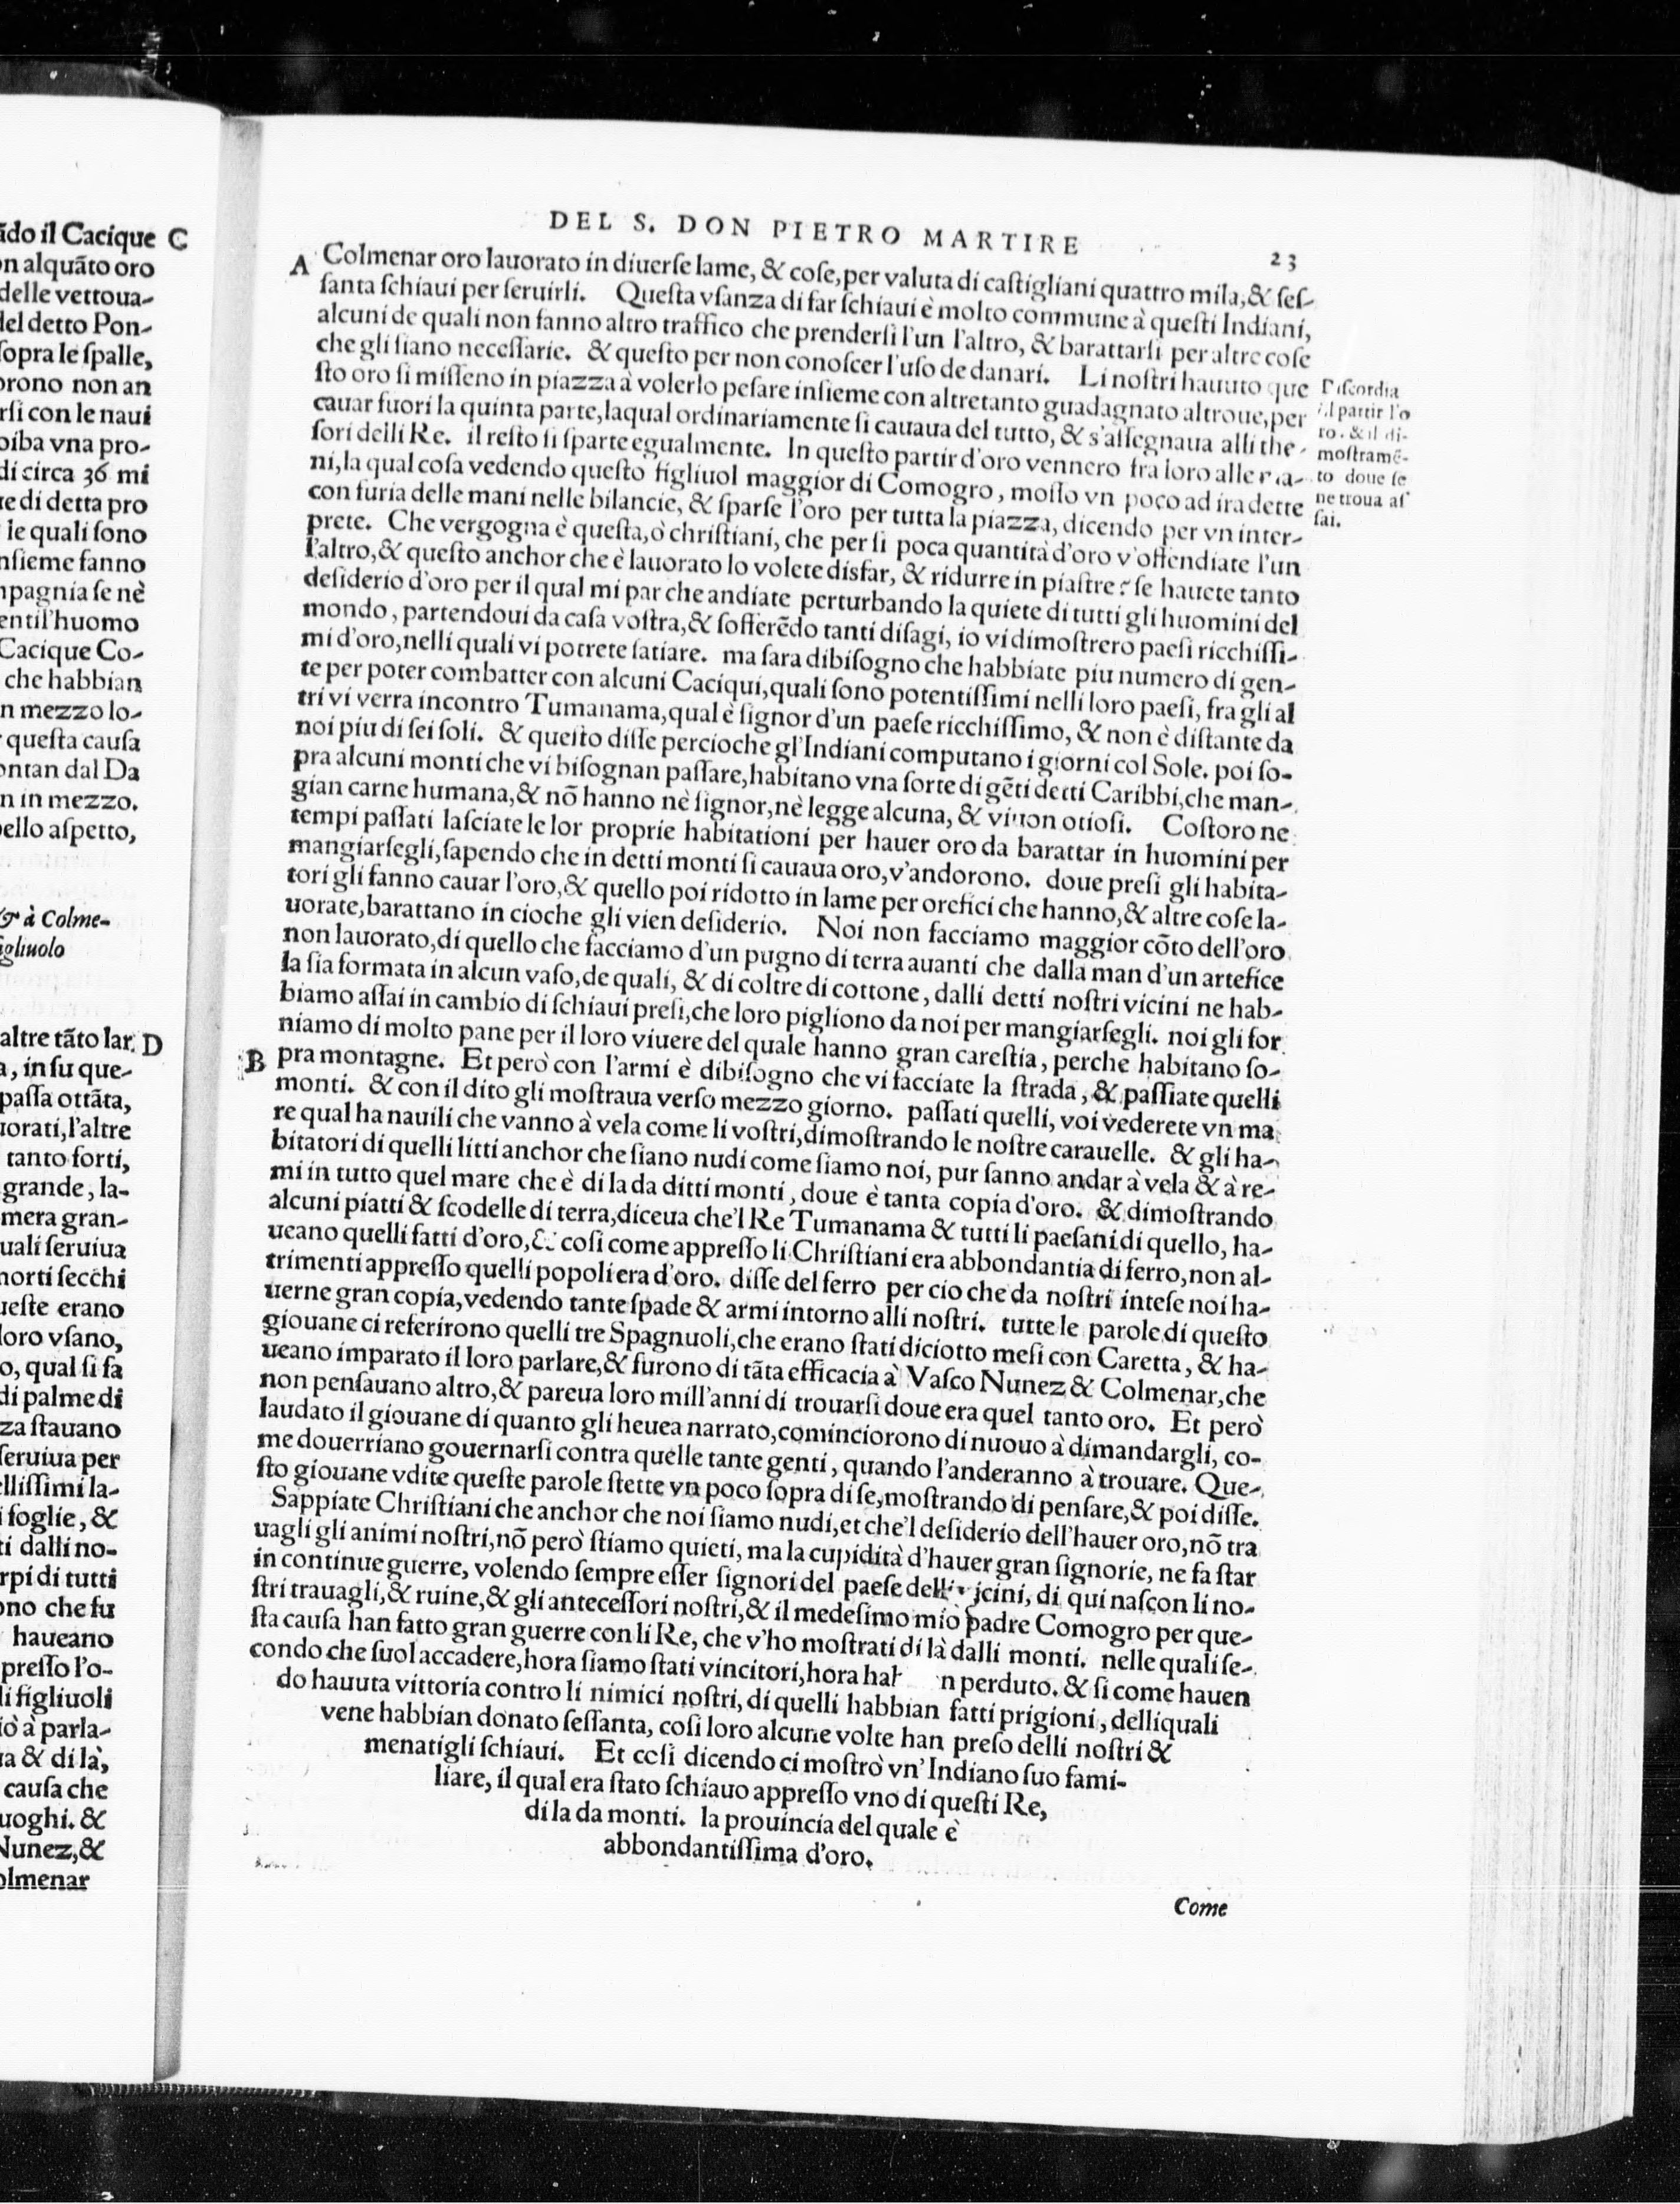 ãdo il Cacique C
on alquãto oro
delle vettoua-
del detto Pon-
sopra le spalle,
orono non an
rsi con le naui
oiba vna pro-
di circa 36 mi
te di detta pro
le quali sono
nsieme fanno
mpagnia se nè
entil'huomo
Cacique Co-
che habbian
n mezzo lo-
questa causa
ontan dal Da
n in mezzo.
bello aspetto,
& à Colme-
igliuolo
altre tãto lar. D
a, in su que-
passa ottãta,
uorati, l'altre
tanto forti,
grande, la-
mera gran-
uali seruiua
morti secchi
ueste erano
loro vsano,
o, qual si fa
di palme di
za stauano
seruiua per
ellissimi la-
i foglie, &
ti dalli no-
rpi di tutti
ono che fu
haueano
presso l'o-
li figliuoli
iò à parla-
ua & di là,
causa che
uoghi. &
Nunez, &
olmenar
DEL S. DON PIETRO MARTIRE
23
A Colmenar oro lauorato in diuerse lame, & cose, per valuta di castigliani quattro mila, & ses-
santa schiaui per seruirli. Questa vsanza di far schiaui è molto commune à questi Indiani,
alcuni de quali non fanno altro traffico che prendersi l'un l'altro, & barattarsi per altre cose
che gli siano necessarie. & questo per non conoscer l'uso de danari. Li nostri hauuto que
sto oro si misseno in piazza à volerlo pesare insieme con altretanto guadagnato altroue, per
cauar fuori la quinta parte, laqual ordinariamente si cauaua del tutto, & s'assegnaua alli the-
sori delli Re. il resto si sparte egualmente. In questo partir d'oro vennero fra loro alle ma-
ni, la qual cosa vedendo questo figliuol maggior di Comogro, mosso vn poco ad ira dette
con furia delle mani nelle bilancie, & sparse l'oro per tutta la piazza, dicendo per vn inter-
prete. Che vergogna è questa, ò christiani, che per si poca quantità d'oro v'offendiate l'un
l'altro, & questo anchor che è lauorato lo volete disfar, & ridurre in piastre? se hauete tanto
desiderio d'oro per il qual mi par che andiate perturbando la quiete di tutti gli huomini del
mondo, partendoui da casa vostra, & sofferẽdo tanti disagi, io vi dimostrero paesi ricchissi-
mi d'oro, nelli quali vi potrete satiare. ma sara dibisogno che habbiate piu numero di gen-
te per poter combatter con alcuni Caciqui, quali sono potentissimi nelli loro paesi, fra gli al
tri vi verra incontro Tumanama, qual è signor d'un paese ricchissimo, & non è distante da
noi piu di sei soli. & questo disse percioche gl'Indiani computano i giorni col Sole. poi so-
pra alcuni monti che vi bisognan passare, habitano vna sorte di gẽti detti Caribbi, che man-
gian carne humana, & nõ hanno nè signor, nè legge alcuna, & viuon otiosi. Costoro ne
tempi passati lasciate le lor proprie habitationi per hauer oro da barattar in huomini per
mangiarsegli, sapendo che in detti monti si cauaua oro, v'andorono. doue presi gli habita-
tori gli fanno cauar l'oro, & quello poi ridotto in lame per orefici che hanno, & altre cose la-
uorate, barattano in cioche gli vien desiderio. Noi non facciamo maggior cõto dell'oro
non lauorato, di quello che facciamo d'un pugno di terra auanti che dalla man d'un artefice
la sia formata in alcun vaso, de quali, & di coltre di cottone, dalli detti nostri vicini ne hab-
biamo assai in cambio di schiaui presi, che loro pigliono da noi per mangiarsegli. noi gli for
niamo di molto pane per il loro viuere del quale hanno gran carestia, perche habitano so-
B pra montagne. Et però con l'armi è dibisogno che vi facciate la strada, & passiate quelli
monti. & con il dito gli mostraua verso mezzo giorno. passati quelli, voi vederete vn ma
re qual ha nauili che vanno à vela come li vostri, dimostrando le nostre carauelle. & gli ha-
bitatori di quelli litti anchor che siano nudi come siamo noi, pur sanno andar à vela & à re-
mi in tutto quel mare che è di la da ditti monti, doue è tanta copia d'oro. & dimostrando
alcuni piatti & scodelle di terra, diceua che'l Re Tumanama & tutti li paesani di quello, ha-
ueano quelli fatti d'oro, & cosi come appresso li Christiani era abbondantia di ferro, non al-
trimenti appresso quelli popoli era d'oro. disse del ferro per cio che da nostri intese noi ha-
uerne gran copia, vedendo tante spade & armi intorno alli nostri. tutte le parole di questo
giouane ci referirono quelli tre Spagnuoli, che erano stati diciotto mesi con Caretta, & ha-
ueano imparato il loro parlare, & furono di tãta efficacia à Vasco Nunez & Colmenar, che
non pensauano altro, & pareua loro mill'anni di trouarsi doue era quel tanto oro. Et però
laudato il giouane di quanto gli heuea narrato, cominciorono di nuouo à dimandargli, co-
me douerriano gouernarsi contra quelle tante genti, quando l'anderanno à trouare. Que-
sto giouane vdite queste parole stette vn poco sopra di se, mostrando di pensare, & poi disse.
Sappiate Christiani che anchor che noi siamo nudi, et che'l desiderio dell'hauer oro, nõ tra
uagli gli animi nostri, nõ però stiamo quieti, ma la cupidità d'hauer gran signorie, ne fa star
in continue guerre, volendo sempre esser signori del paese delli vicini, di qui nascon li no-
stri trauagli, & ruine, & gli antecessori nostri, & il medesimo mio padre Comogro per que-
sta causa han fatto gran guerre con li Re, che v'ho mostrati di là dalli monti. nelle quali se-
condo che suol accadere, hora siamo stati vincitori, hora hab n perduto. & si come hauen
do hauuta vittoria contro li nimici nostri, di quelli habbian fatti prigioni, delli quali
vene habbian donato sessanta, cosi loro alcune volte han preso delli nostri &
menatigli schiaui. Et cosi dicendo ci mostrò vn' Indiano suo fami-
liare, il qual era stato schiauo appresso vno di questi Re,
di la da monti. la prouincia del quale è
abbondantissima d'oro.
Come
Discordia
il partir l'o
ro. & il di-
mostramẽ-
to doue se
ne troua as
sai.